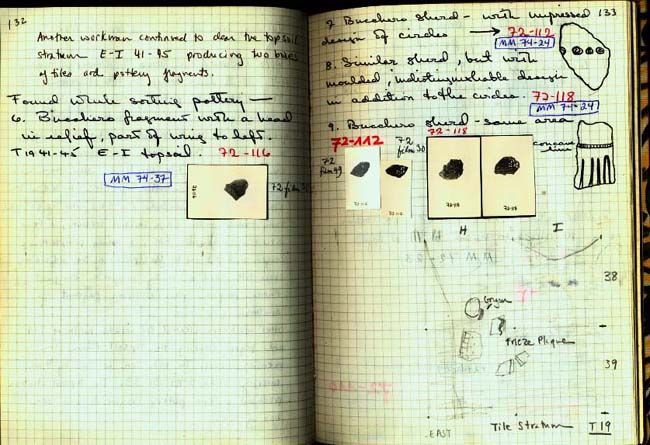 132
Another workman continued to clear the topsoil
stratum E-I 41-45 producing two boxes
of tiles and pottery fragments.
Found while sorting pottery —
6. Bucchero fragment with a head
in relief, part of wing to left.
T 19 41-45 E-I topsoil. 72-116
MM 74-37
72 film
133
7. Bucchero sherd - with impressed
design of circles → 72-112
MM 74-24
8. Similar sherd, but with
moulded, indistinguishable design
in addition to the circles. 72-118
9. Bucchero sherd - same area
72-118
72-112
72
film 30
72
concave
H
I
38
Gorgon
Frieze Plaque
39
EAST
Tile Stratum
T 19